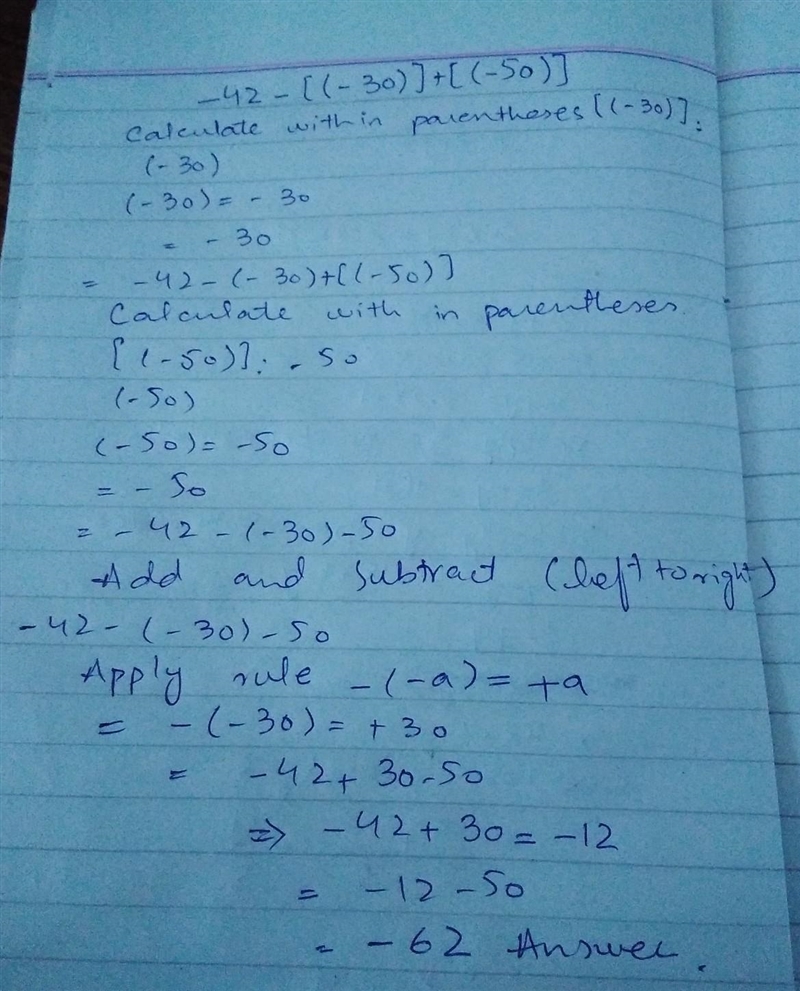 -42-[(-30)]+[(-50)]
Calculate with in parentheses [(-30)].
(-30)
(-30) = - 30
= - 30
= -42-(-30)+[(-50)]
Calculate with in parentheses.
[(-50)]: -50
(-50)
(-50) = -50
= - 50
= -42-(-30)-50
Add and Subtract (left to right)
-42-(-30)-50
Apply rule -(-a) = +a
= -(-30) = +30
= -42+30-50
⇒ -42+30 = -12
= -12-50
= -62 Answer.